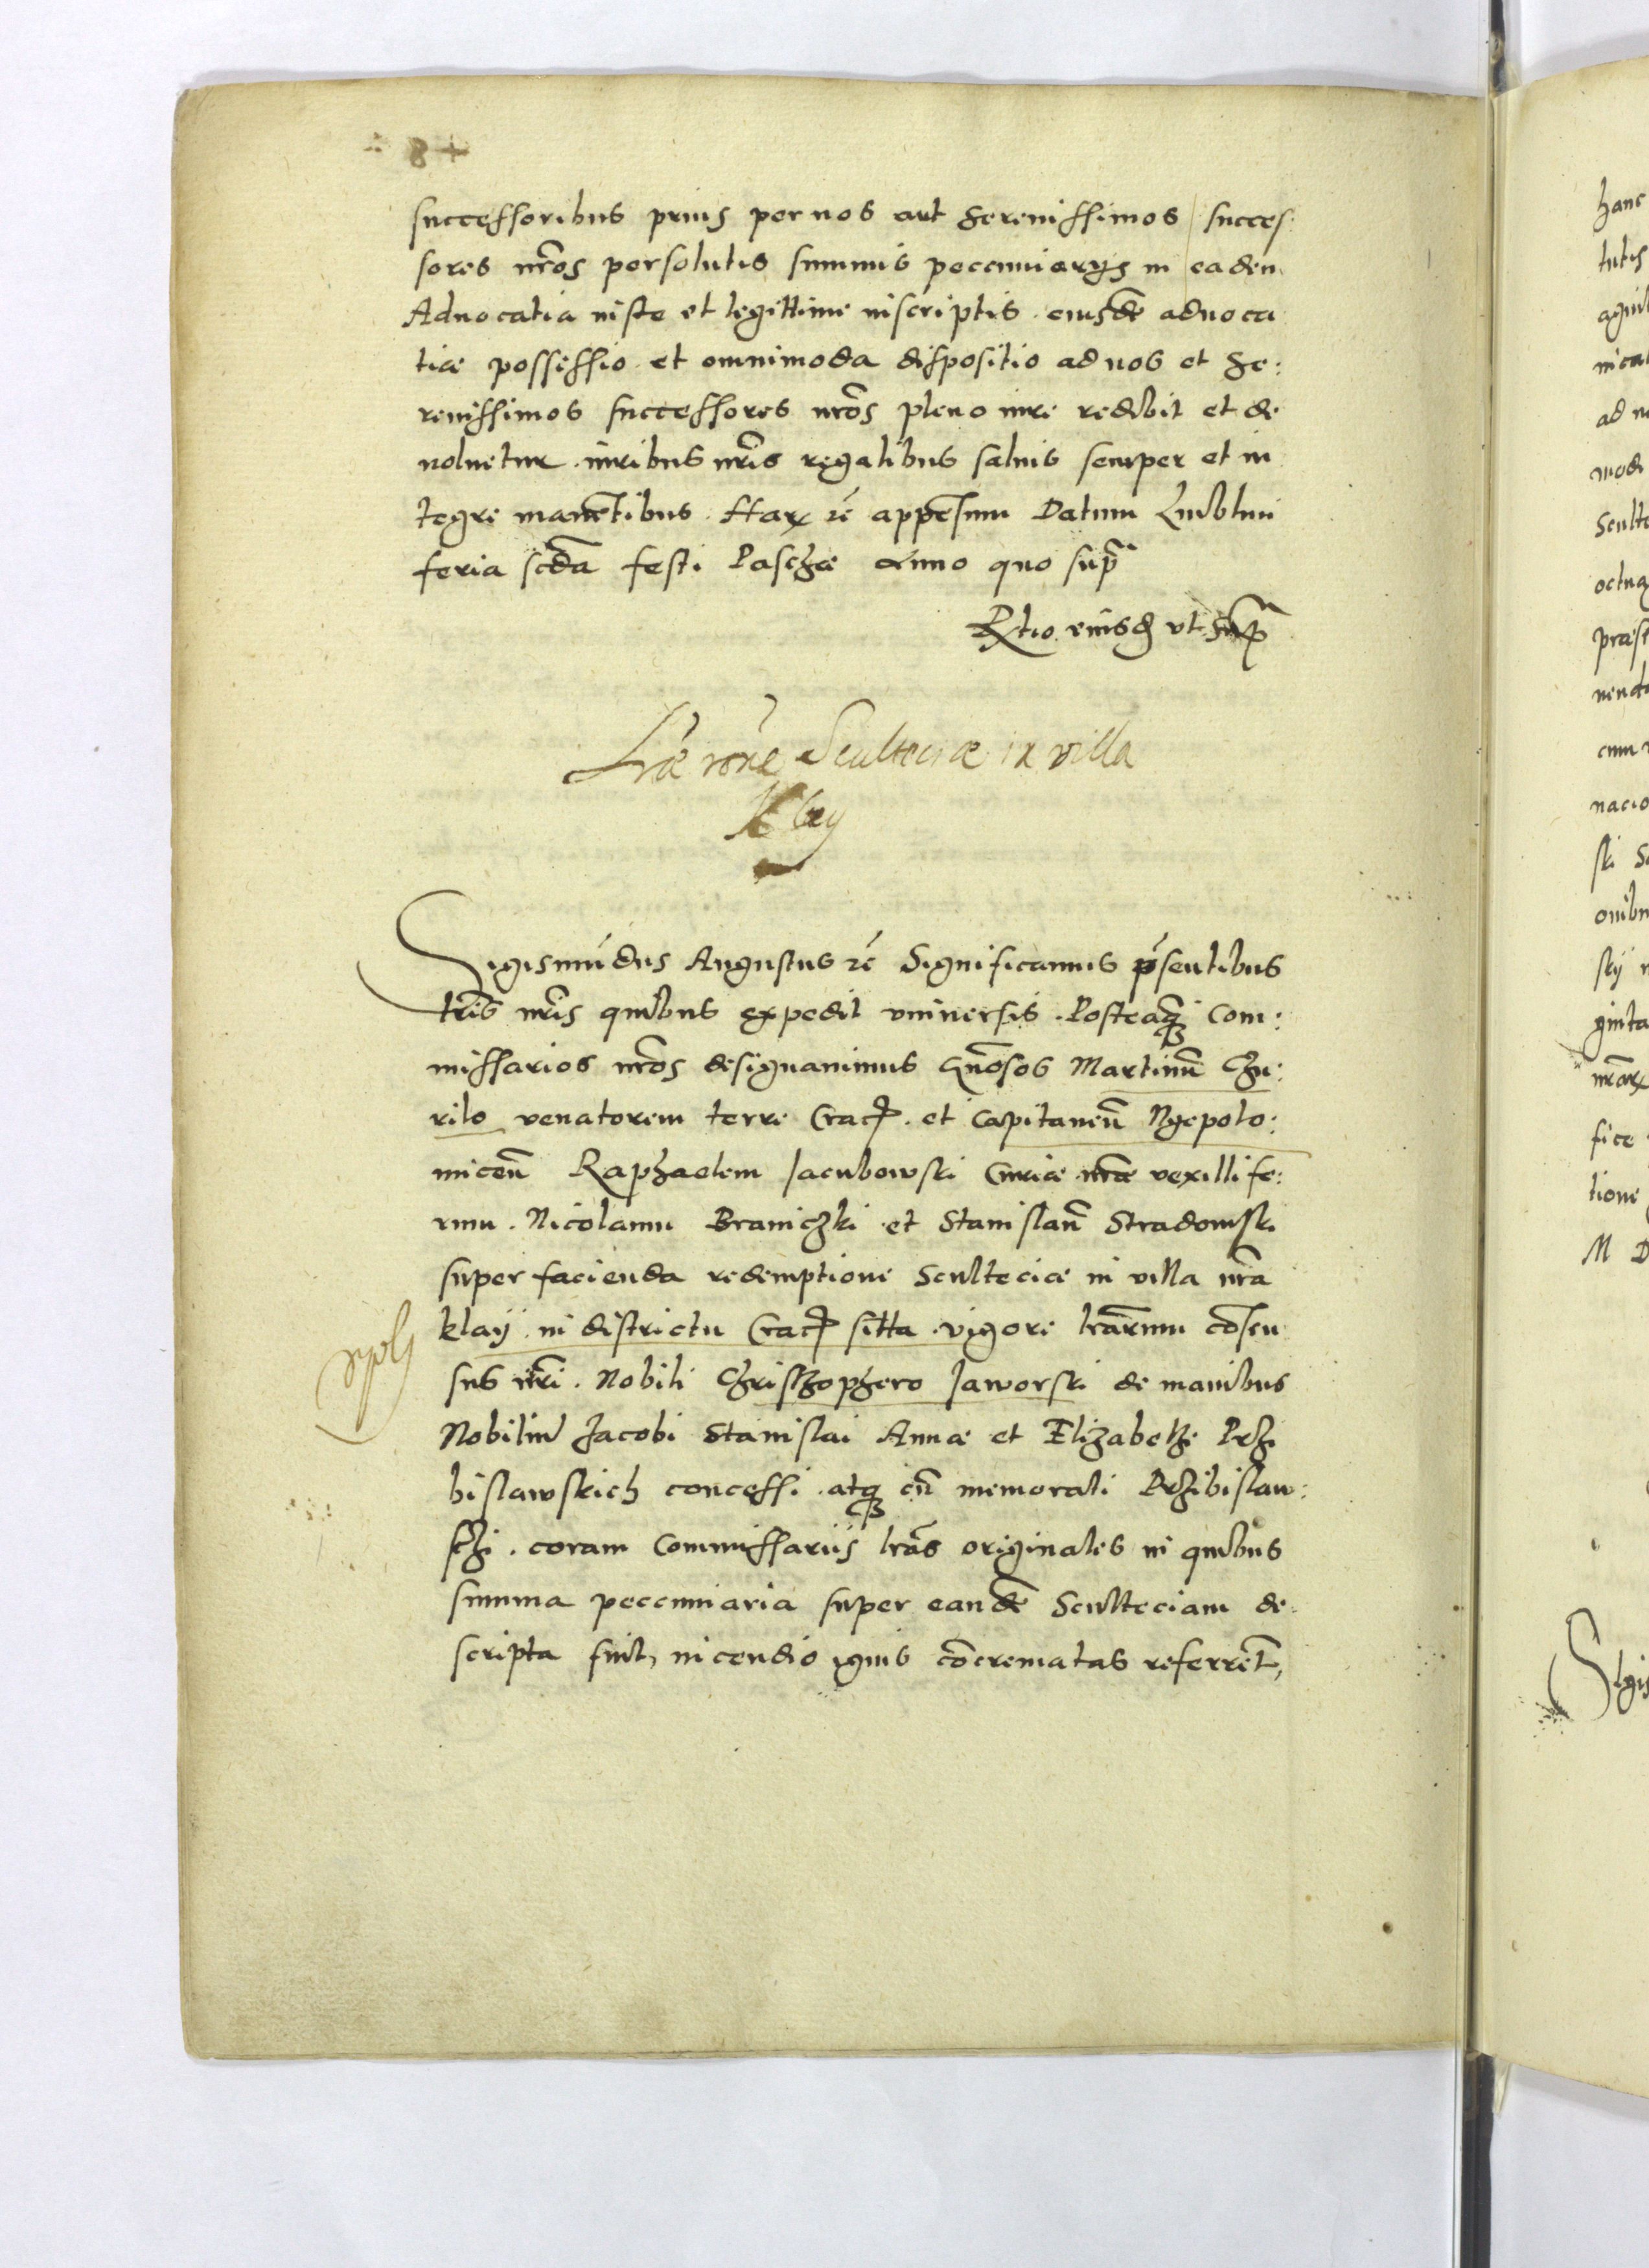 successoribus prius per nos aut Serenissimos succes:
sores nr̃os persolutis summis peccuniarys in eadem
Aduocatia iuste et legittime inscriptis. eiusdẽ aduoca
tiæ possessio et omnimoda dispositio ad nos et Se:
renissimos successores nr̃os pleno iure redibit et de
uoluetur. iuribus nr̃is regalibus saluis semper et in
tegre manẽtibus. Harx rẽ appẽsum Datum Lublini
feria scd̃a festi Paschæ Anno quo supr̃
Rtio eiusd ut supr
Lr̃æ rõne Sculteciæ in villa
Klay
Sigismũdus Augustus rẽ Significamus p̃sentibus
lr̃is nr̃is quibus expedit vniuersis. Posteaq̃ Com:
missarios nr̃os designauimus Gñosos Martinũ Chu:
rilo venatorem terre Crac. et Capitaneũ Nyepolo:
miceñ Raphaelem Jacubowski Curiæ nr̃æ vexillife:
rum. Nicolaum Braniczki et Stanislaũ Stradomski
super facienda redemptione Sculteciæ in villa nr̃a
klay in districtu Crac sitta vigore lr̃arum cõsen
sus nr̃i. Nobili Christhophero Jaworski de manibus
Nobiliũ Jacobi Stanislai Annæ et Elizabethe Przi
bislawskich concessi. atq̃ cũ memorati Przibislaw:
schi. coram Commissariis lr̃as originales in quibus
summa peccuniaria super eandẽ Sculteciam de
scripta fuit, incendio ignis cõcrematas referrẽt,